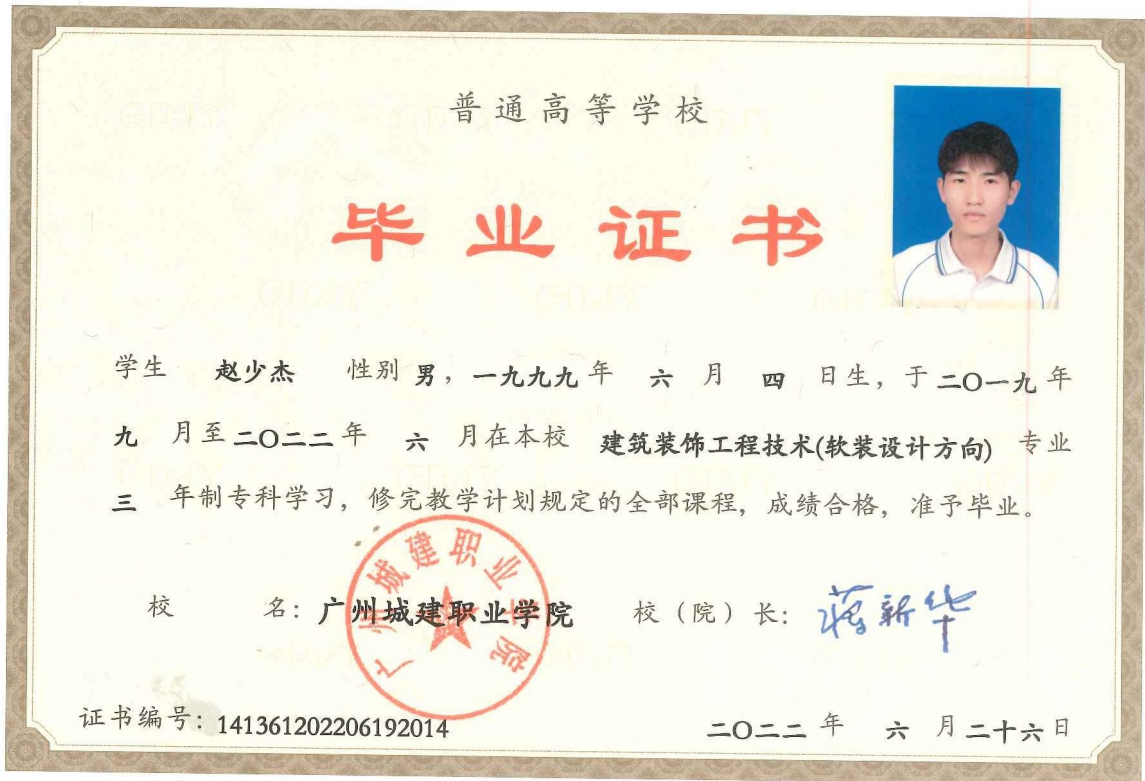 普通高等学校
毕业证书
学生 赵少杰 性别 男，一九九九 年 六 月 四 日生，于 二〇一九 年
九 月至 二〇二二 年 六 月在本校 建筑装饰工程技术(软装设计方向) 专业
三 年制专科学习，修完教学计划规定的全部课程，成绩合格，准予毕业。
校 名：广州城建职业学院 校（院）长：蒋新华
广州城建职业学院
证书编号：141361202206192014 二〇二二 年 六 月 二十六 日